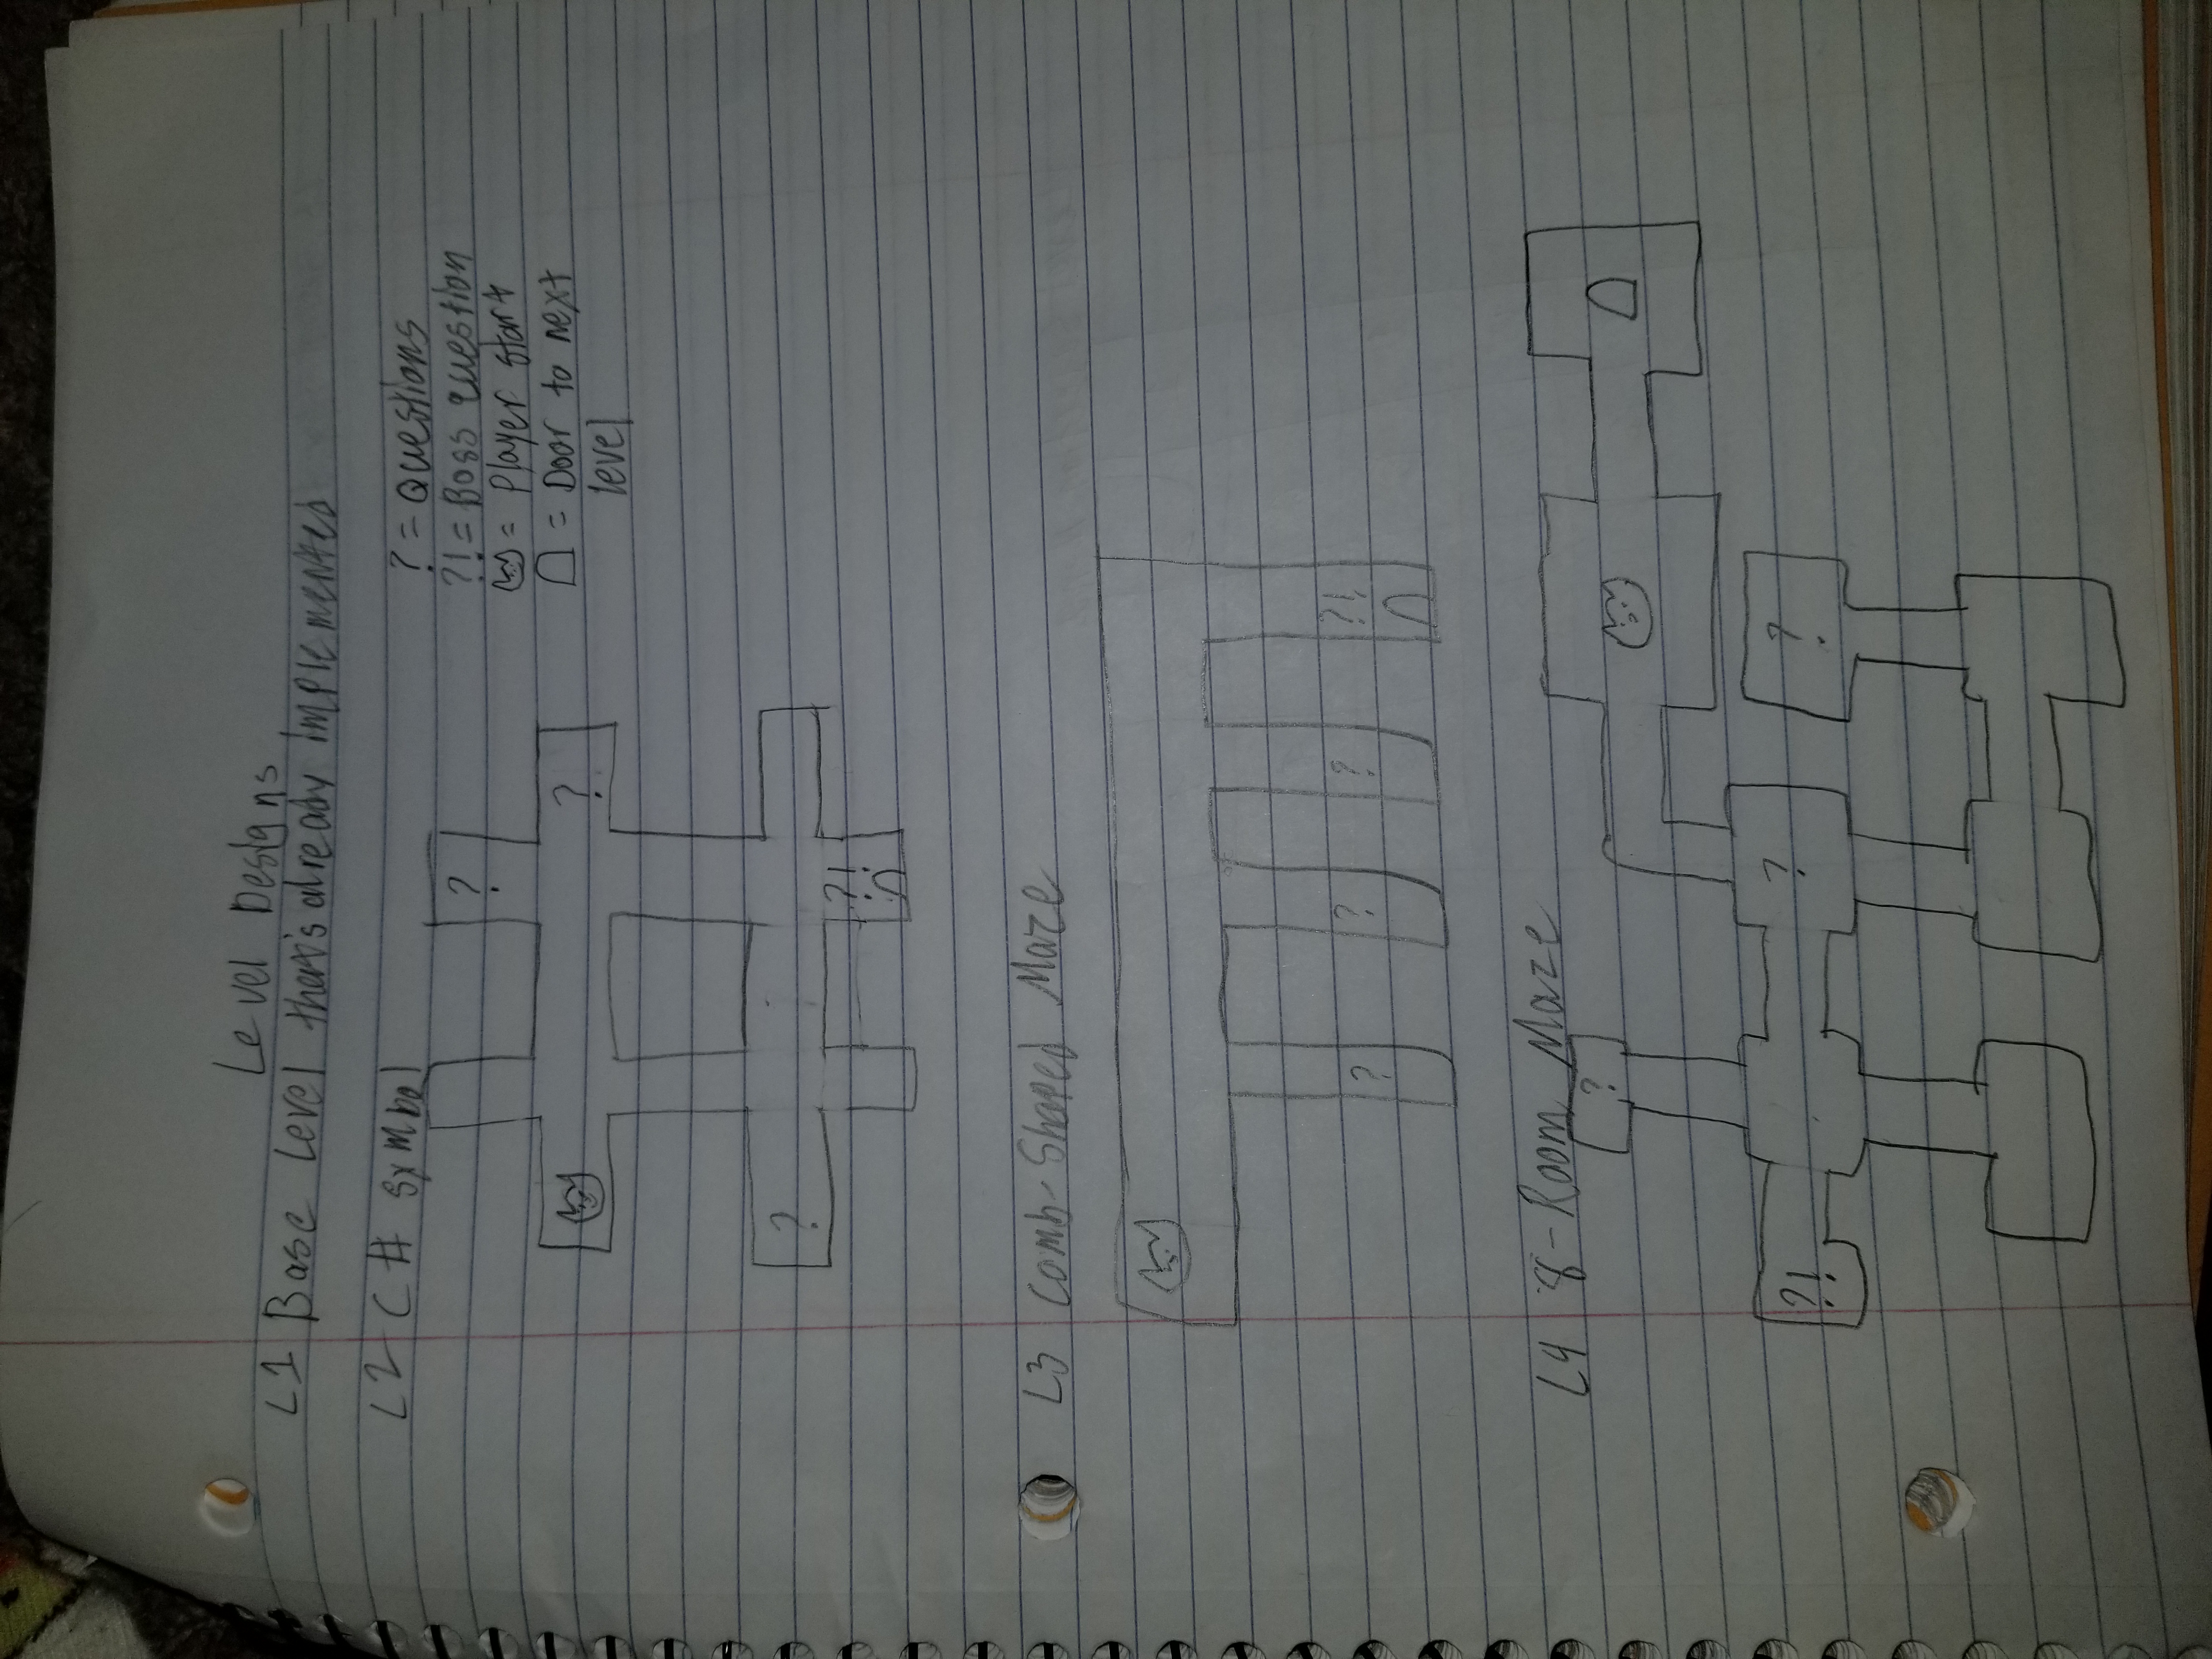 Level Designs
L1 Base Level that's already implemented
L2 C# symbol
? = Questions
?! = Boss question
= Player start
= Door to next
level
?
?
?
?!
L3 Comb-Shaped Maze
?
?
?
?!
L4 8-Room Maze
?
?!
?
?